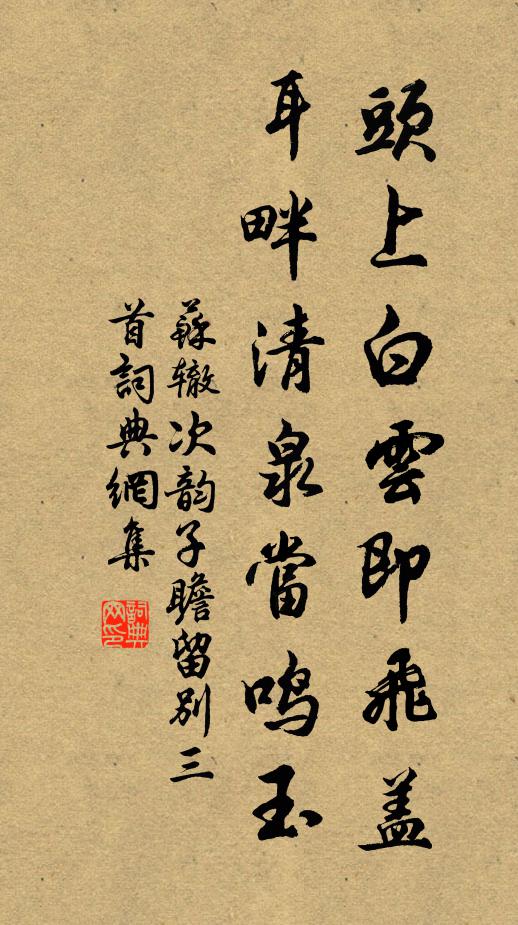 頭上白雲即飛盖
耳畔清泉當鸣玉
蘇辙次韵子瞻留别三
首詞典網集
詞典
网印